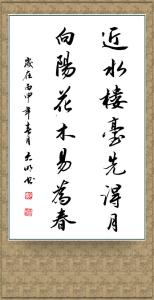 近水楼臺先得月
向陽花木易為春
歲在丙申年春月